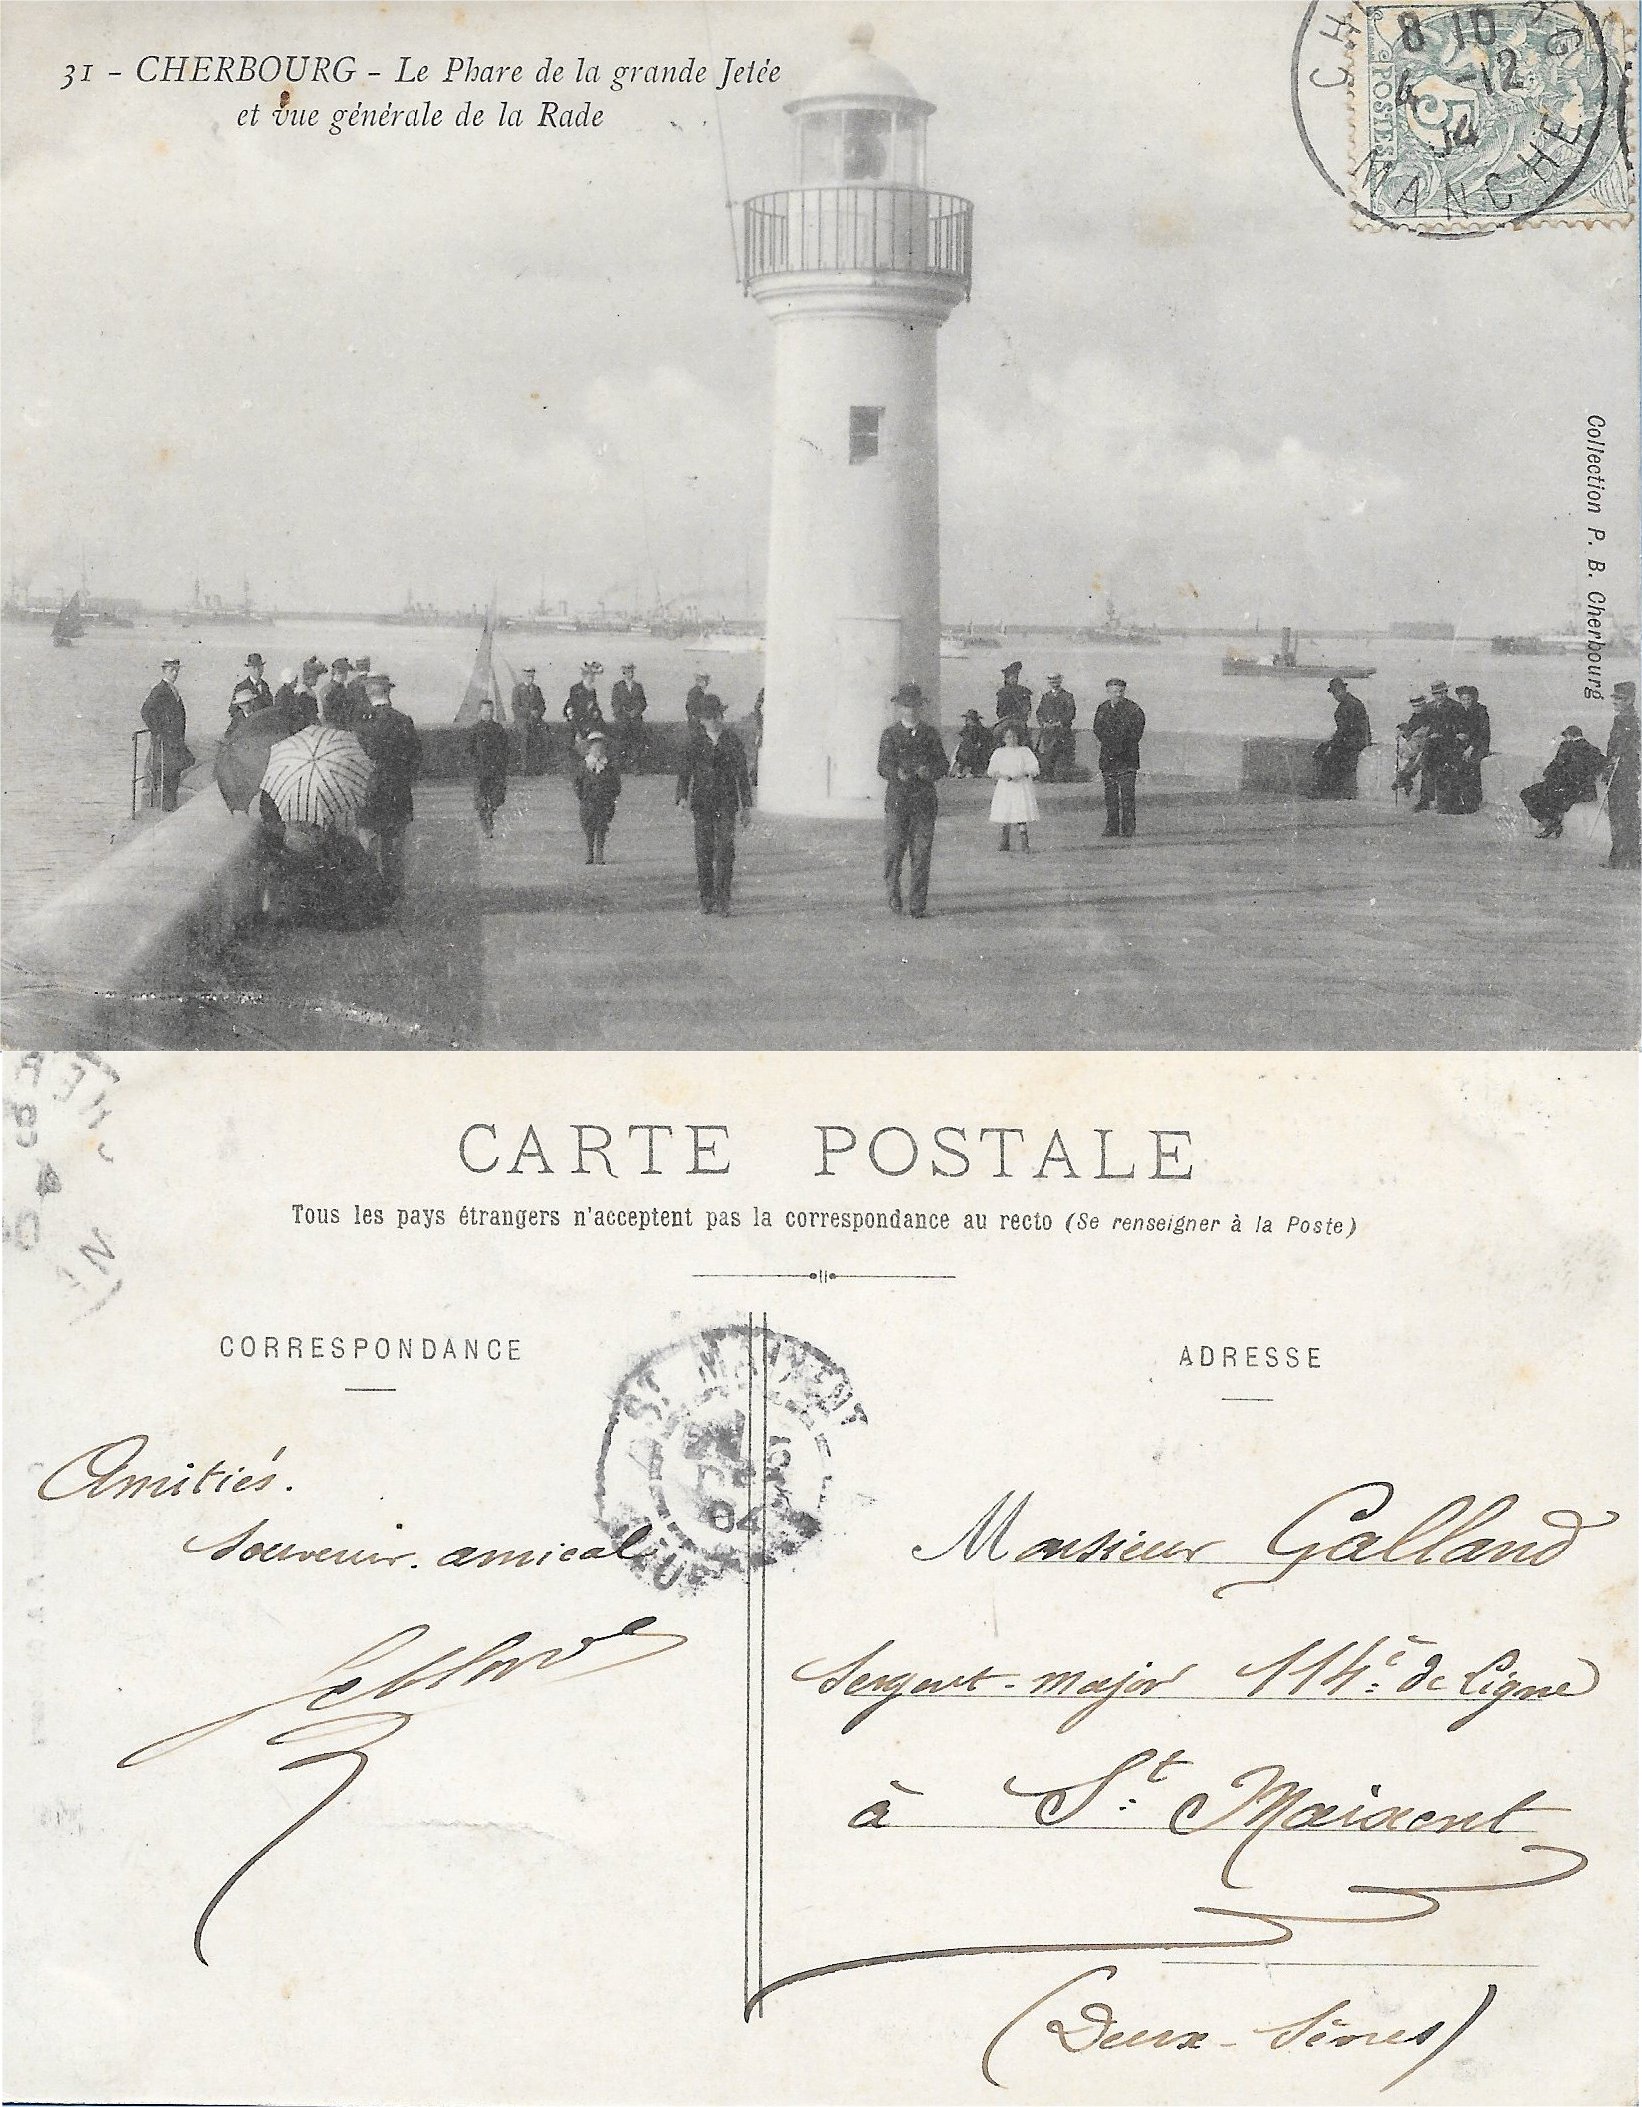 31 - CHERBOURG - Le Phare de la grande Jetée
et vue générale de la Rade
8 10
4 -12
POSTES
5
MANCHE
Collection P. B. Cherbourg
CARTE POSTALE
Tous les pays étrangers n'acceptent pas la correspondance au recto (Se renseigner à la Poste)
CORRESPONDANCE
ADRESSE
ST MAIXENT
04
Amitiés.
Souvenir amical
Monsieur Galland
Sergent-major 114e de ligne
à St Maixent
(Deux-Sèvres)